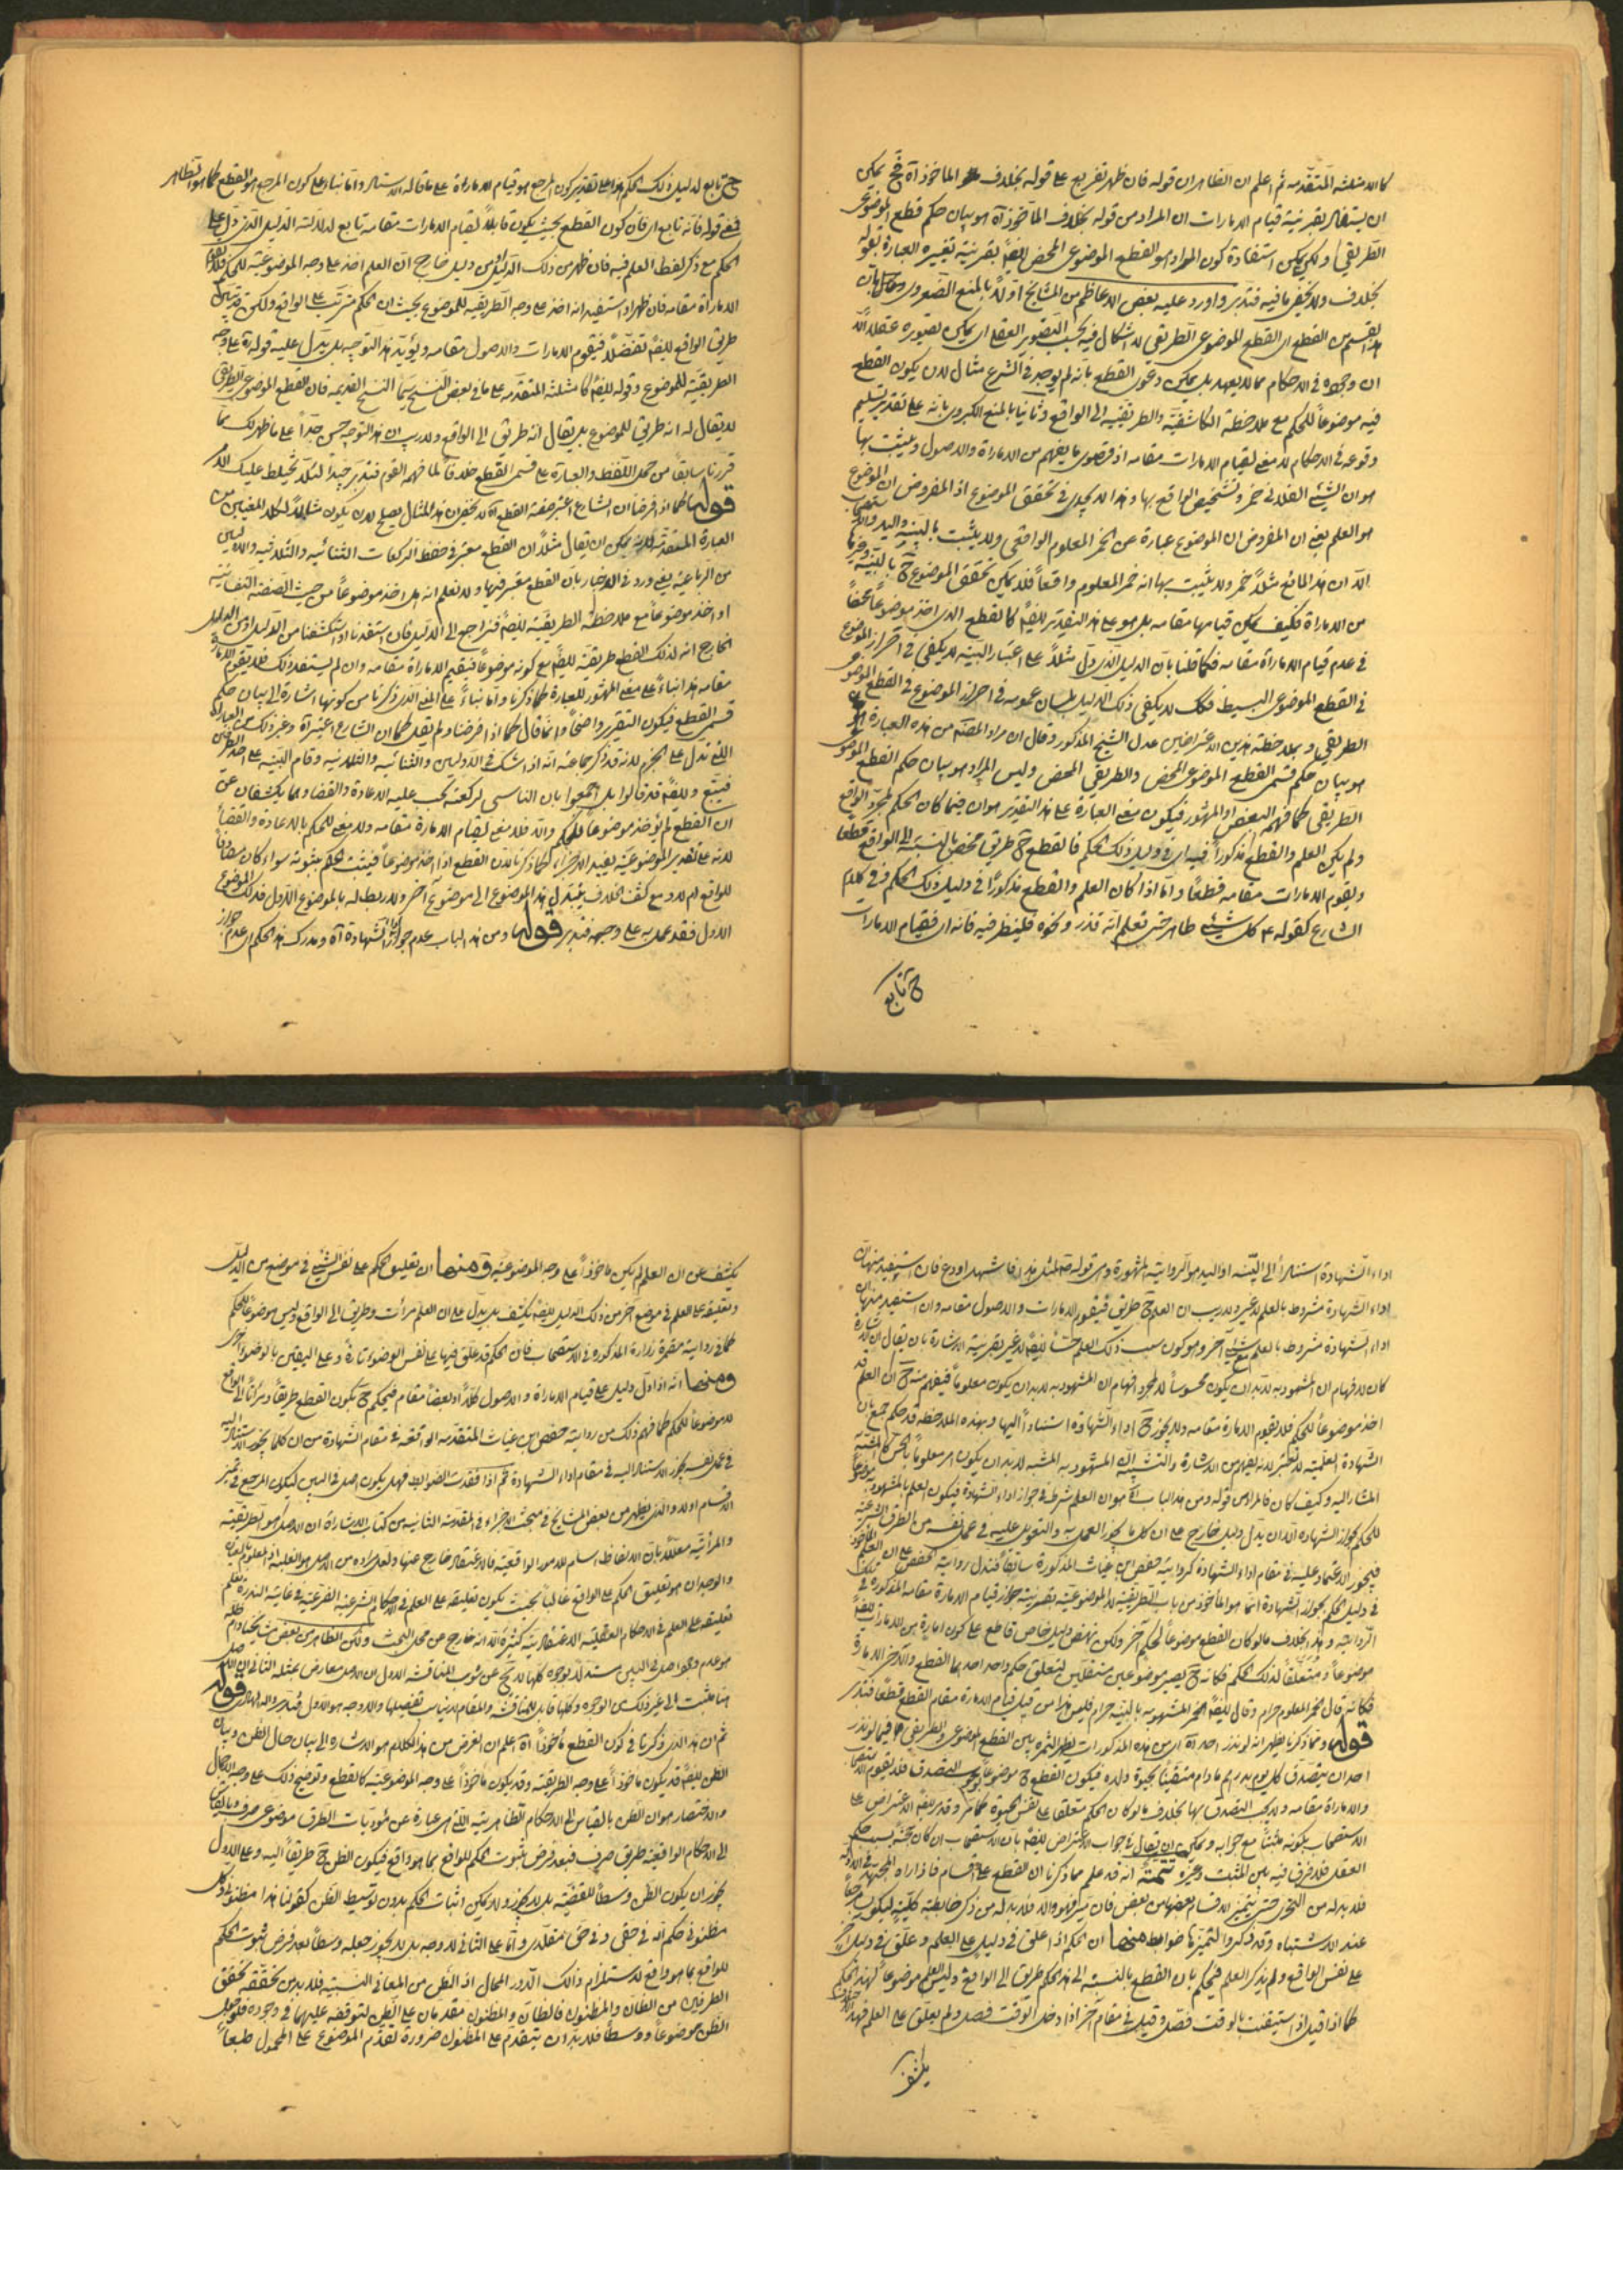 كالامثلة المتقدمة ثم اعلم ان الظاهر ان قوله فان ظهر تفريع على قوله بخلاف المأخوذ آه فح يمكن
ان يستظهر بقرينة قيام الامارات ان المراد من قوله بخلاف المأخوذ آه هو بيان حكم قطع الموضوعى
الطريقى ولكن يمكن استفادة كون المراد هو القطع الموضوعى المحض ايضاً بقرينة تغييره العبارة بقوله
بخلاف ولا يخفى ما فيه فتدبر واورد عليه بعض الاعاظم من المشايخ اولاً بالمنع الصغروى وحاصله بان
هذا القسم من القطع اى القطع الموضوعى الطريقى لا اشكال فيه بحسب التصوير العقلى اى يمكن تصويره عقلاً الا
ان وجوده فى الاحكام مما لا يعهد بل يمكن دعوى القطع بانه لم يوجد فى الشرع مثال لان يكون القطع
فيه موضوعاً للحكم مع ملاحظة الكاشفية والطريقية الى الواقع وثانيا بالمنع الكبروى بانه على تقدير تسليم
وقوعه فى الاحكام لا معنى لقيام الامارات مقامه اذ قصوى ما يفهم من الامارة والاصول ويثبت بها
هو ان الشئ الفلانى خمر وتشخيص الواقع بها وهذا لا يجدى فى تحقق الموضوع اذ المفروض ان الموضوع
هو العلم يعنى ان المفروض ان الموضوع عبارة عن الخمر المعلوم الواقعى ولا يثبت بالبينة واليد والاستصحاب
الا ان هذا المائع مثلاً خمر ولا يثبت بها انه خمر المعلوم واقعاً فلا يمكن تحقق الموضوع ح بالبينة وغيرها
من الامارة فكيف يمكن قيامها مقامه بل هو على هذا التقدير ايضاً كالقطع الذى اخذ موضوعاً محضاً
فى عدم قيام الامارة مقامه فكما قلنا بان الدليل الذى دل مثلاً على اعتبار البينة لا يكفى فى احراز الموضوع
فى القطع الموضوعى البسيط فكك لا يكفى ذلك الدليل بلسان عمومه فى احراز الموضوع فى القطع الموضوعى
الطريقى وبملاحظة هذين الاعتراضين عدل الشيخ المذكور وقال ان مراد المصنف من هذه العبارة
هو بيان حكم قسمى القطع الموضوعى المحض والطريقى المحض وليس المراد هو بيان حكم القطع الموضوعى
الطريقى كما فهمه البعض او المشهور فيكون معنى العبارة على هذا التقدير هو ان فيما كان الحكم لمجرد الواقع
ولم يكن العلم والقطع مذكوراً فيه اى فى دليل ذلك الحكم فالقطع ح طريق محض بالنسبة الى الواقع قطعاً
وبقوم الامارات مقامه قطعاً واما اذا كان العلم والقطع مذكوراً فى دليل ذلك الحكم وفى كلام
الشارع كقوله ع كل شئ طاهر حتى تعلم انه قذر ونحوه فلينظر فيه فانه اى فقيام الامارات
ح تابع
ح تابع لدليل ذلك الحكم هذا على تقدير كون المرجع هو قيام الامارة على ما قاله الاستاد واما بناء على كون المرجع هو القطع كما هو الظاهر
فمعنى قوله فانه تابع اى فان كون القطع بحيث يكون قابلاً لقيام الامارات مقامه تابع لدلالة الدليل الذى دل على
الحكم مع ذكر لفظ العلم فيه فان ظهر من ذلك الدليل او من دليل خارج ان العلم اخذ على وجه الموضوعية للحكم فلا يقوم
الامارة مقامه وان ظهر او استفيد انه اخذ على وجه الطريقية للموضوع بحيث ان الحكم مترتب على الواقع ولكن
طريق الواقع ايضاً تفضلاً فيقوم الامارات والاصول مقامه ويؤيد هذا التوجيه بل يدل عليه قوله ره على وجه
الطريقية للموضوع وقوله ايضاً كالامثلة المتقدمة على ما فى بعض النسخ سيما النسخ القديمة فان القطع الموضوعى الطريقى
لا يقال له انه طريق للموضوع بل يقال انه طريق الى الواقع ولا ريب ان هذا التوجيه حسن جداً على ما ظهر لك مما
قررنا سابقاً من حمل اللفظ والعبارة على قسمى القطع خلافاً لما فهمه القوم فتدبر جيداً لئلا يختلط عليك الامر
قوله كما اذا فرضنا ان الشارع اعتبر صفة القطع آه لا يخفى ان هذا المثال يصلح لان يكون مثالاً لكلا المعنيين من
العبارة المتقدمة لانه يمكن ان يقال مثلاً ان القطع معتبر فى حفظ الركعات الثنائية والثلاثية والاوليين
من الرباعية يعنى ورد فى الاخبار بان القطع معتبر فيها ولا نعلم انه هل اخذ موضوعاً من حيث الصفة النفسانية
او اخذ موضوعاً مع ملاحظة الطريقية ايضاً فنراجع الى الدليل فان استفدنا او استكشفنا من الدليل او من الدليل
الخارج انه لذلك القطع طريقية ايضاً مع كونه موضوعاً فتقيم الامارة مقامه وان لم يستفد ذلك فلا يقوم الامارة
مقامه هذا بناءً على معنى المشهور للعبارة كما ذكرنا واما بناءً على المعنى الذى ذكرنا من كونها اشارة الى بيان حكم
قسمى القطع فيكون التقرير واضحاً وانما قال كما اذا فرضنا ولم يقل كما ان الشارع اعتبر آه وغير ذلك من العبارة
اللتى تدل على الجزم لانه قد ذكر جماعة انه اذا شك فى الاوليين والثنائية والثلاثية وقام البينة على احد الطرفين
فيتبع وايضاً قد قالوا بل اجمعوا بان الناسى لركعة يجب عليه الاعادة والقضاء وهما يكشفان عن
ان القطع لم يؤخذ موضوعاً للحكم والا فلا معنى لقيام الامارة مقامه ولا معنى للحكم بالاعادة والقضاء
لانه على تقدير الموضوعية يفيد الاجزاء كما ذكرنا لان القطع اذا اخذ موضوعاً فيثبت الحكم بثبوته سواء كان مطابقاً
للواقع ام لا ومع كشف الخلاف يتبدل هذا الموضوع الى موضوع آخر ولا ربط له بالموضوع الاول فذلك الموضوع
الاول فقد عمل به على وجهه فتدبر قوله ومن هذا الباب عدم جواز اداء الشهادة آه ومدرك هذا الحكم اى عدم جواز
اداء الشهادة استناداً الى البينة او اليد هو الرواية المشهورة وهى قوله ص لمثل هذا فاشهد او دع فان استفيد منها ان
اداء الشهادة مشروط بالعلم لا غير ولا ريب ان العلم ح طريق فيقوم الامارات والاصول مقامه وان استفيد منها ان
اداء الشهادة مشروط بالعلم مع شئ آخر وهو كون سبب ذلك العلم حساً ايضاً لا غير بقرينة الاشارة بان يقال ان الاشارة
كان لافهام ان المشهود به لا بد ان يكون محسوساً لا لمجرد افهام ان المشهود به لا بد ان يكون معلوماً فيفهم منه ح ان العلم قد
اخذ موضوعاً للحكم فلا يقوم الامارة مقامه ولا يجوز ح اداء الشهادة استناداً اليها وبهذه الملاحظة قد حكم جمع بان
الشهادة العلمية لا تعتبر لانه يفهم من الاشارة والتشبيه ان المشهود به المشبه لا بد ان يكون امر معلوماً بالحس كالمشبه به
المشار اليه وكيف كان فالمراد من قوله ومن هذا الباب آه هو ان العلم شرط فى جواز اداء الشهادة فيكون العلم بالمشهود به موضوعاً
للحكم بجواز الشهادة الا ان يدل دليل خارج على ان كل ما يجوز العمل به والتعويل عليه فى عمل نفسه من الطرق الشرعية
فيجوز الاعتماد عليه فى مقام اداء الشهادة كرواية حفص ابن غياث المذكورة سابقاً فتدل رواية حفص على ان العلم المأخوذ
فى دليل الحكم بجواز الشهادة انما هو المأخوذ من باب الطريقية لا الموضوعية بقرينة جواز قيام الامارة مقامه المذكورة فى تلك
الرواية وهذا بخلاف ما لو كان القطع موضوعاً لحكم آخر ولكن نهض دليل خاص قاطع على كون امارة من الامارات ايضاً
موضوعاً ومتعلقاً لذلك الحكم فكانه ح يصير موضوعين مستقلين لتعلق حكم واحد احدهما القطع والآخر الامارة
فكانه قال الخمر المعلوم حرام وقال ايضاً الخمر المشهود به بالبينة حرام فليس هذا من قبيل قيام الامارة مقام القطع قطعاً فتدبر
قوله ومما ذكرنا يظهر انه لو نذر احد آه اى من هذه المذكورات يظهر الثمرة بين القطع الموضوعى والطريقى فيما لو نذر
احد ان يتصدق كل يوم بدرهم ما دام متيقناً بحيوة ولده فيكون القطع ح موضوعاً لوجوب التصدق فلا يقوم الاستصحاب
والامارة مقامه ولا يجب التصدق بها بخلاف ما لو كان الحكم متعلقا على نفس الحيوة كما مر وقد مر ايضاً الاعتراض على
الاستصحاب بكونه مثبتاً مع جوابه ويمكن ان يقال فى جواب الاعتراض ايضاً بان الاستصحاب ان كان حجية بسبب حكم
العقل فلا فرق فيه بين المثبت وغيره تتمة انه قد علم مما ذكرنا ان القطع على اقسام فاذا اراد المجتهد فى الادلة
فلا بد له من التحرى حتى يتميز الاقسام بعضها من بعض فان تميز فهو والا فلا بد له من ذكر ضابطة كلية ليكون مرجعاً
عند الاشتباه وقد ذكروا للتميز ضوابط منها ان الحكم اذا علق فى دليل على العلم وعلق فى دليل آخر
على نفس الواقع ولم يذكر العلم فيحكم بان القطع بالنسبة الى هذا الحكم طريق الى الواقع وليس العلم موضوعاً لهذا الحكم
كما اذا قيل اذا استيقنت بالوقت فصل وقيل فى مقام آخر اذا دخل الوقت فصل ولم يعلق على العلم فهذا
يكشف
يكشف عن ان العلم لم يكن مأخوذاً على وجه الموضوعية ومنها ان تعليق الحكم على نفس الشئ فى موضع من الدليل
وتعليقه على العلم فى موضع آخر من ذلك الدليل ايضاً يكشف بل يدل على ان العلم مرآت وطريق الى الواقع وليس موضوعاً للحكم
كما فى رواية مضمرة زرارة المذكورة فى الاستصحاب فان الحكم قد علق فيها على نفس الوضوء تارة وعلى اليقين بالوضوء اخرى
ومنها انه اذا دل دليل على قيام الامارة والاصول كلاً او بعضاً مقام فيحكم ح بكون القطع طريقاً ومرآتاً الى الواقع
لا موضوعاً للحكم كما فهم ذلك من رواية حفص ابن غياث المتقدمة الواقعة فى مقام الشهادة من ان كلما يجوز الاستناد اليه
فى عمل نفسه يجوز الاستناد اليه فى مقام اداء الشهادة ثم اذا فقدت الضوابط فهل يكون اصل فى البين ليكون المرجع فى تميز
الاقسام اولا والذى يظهر من بعض المشايخ فى مبحث الاجزاء فى المقدمة الثانية من كتاب الاشارات ان الاصل هو الطريقية
والمرآتية معللاً بان الالفاظ اسام للامور الواقعية فالاعتقاد خارج عنها ولعل مراده من الاصل هو الغلبة اذ المعلوم بالعيان
والوجدان هو تعليق الحكم على الواقع غالباً بحيث يكون تعليقه على العلم فى الاحكام الشرعية الفرعية فى غاية الندرة نعم
تعليقه على العلم فى الاحكام العقلية الاعتقادية كثيرة الا انه خارج عن محل البحث ولكن الظاهر من بعض مشايخنا دام ظله
هو عدم وجود اصل فى البين مستدلاً بوجوه كلها لا يخ عن شوب المناقشة الاول ان الاصل معارض بمثله الثانى ان الاصل
انما يثبت الى غير ذلك من الوجوه وكلها قابل للمناقشة والمقام لا يناسب تفصيلها والاوجه هو الاول فتدبر والله الهادى قوله
ثم ان هذا الذى ذكرنا فى كون القطع مأخوذاً آه اعلم ان الغرض من هذا الكلام هو الاشارة الى بيان حال الظن وبيان
الظن ايضاً قد يكون مأخوذاً على وجه الطريقية وقد يكون مأخوذاً على وجه الموضوعية كالقطع وتوضيح ذلك على وجه الاجمال
والاختصار هو ان الظن بالقياس الى الاحكام الظاهرية اللتى هى عبارة عن مؤديات الطرق موضوعى صرف وبالقياس
الى الاحكام الواقعية طريق صرف فبعد فرض ثبوت الحكم للواقع بما هو واقع فيكون الظن ح طريقاً اليه وعلى الاول
يجوز ان يكون الظن وسطاً للقضية بل لا يجوز ولا يمكن اثبات الحكم بدون توسيط الظن كقولنا هذا مظنونى وكل
مظنونى حكم الله فى حقى وفى حق مقلدى واما على الثانى فلا وجه بل لا يجوز جعله وسطاً بعد فرض ثبوت الحكم
للواقع بما هو واقع لاستلزام ذلك الدور المحال اذ الظن من المعانى النسبية فلا بد من تحققه تحقق
الطرفين من الظان والمظنون فالظان والمظنون مقدمان على الظن لتوقفه عليهما فى وجوده فلو جعل
الظن موضوعاً ووسطاً فلا بد ان يتقدم على المظنون ضرورة تقدم الموضوع على المحمول طبعاً